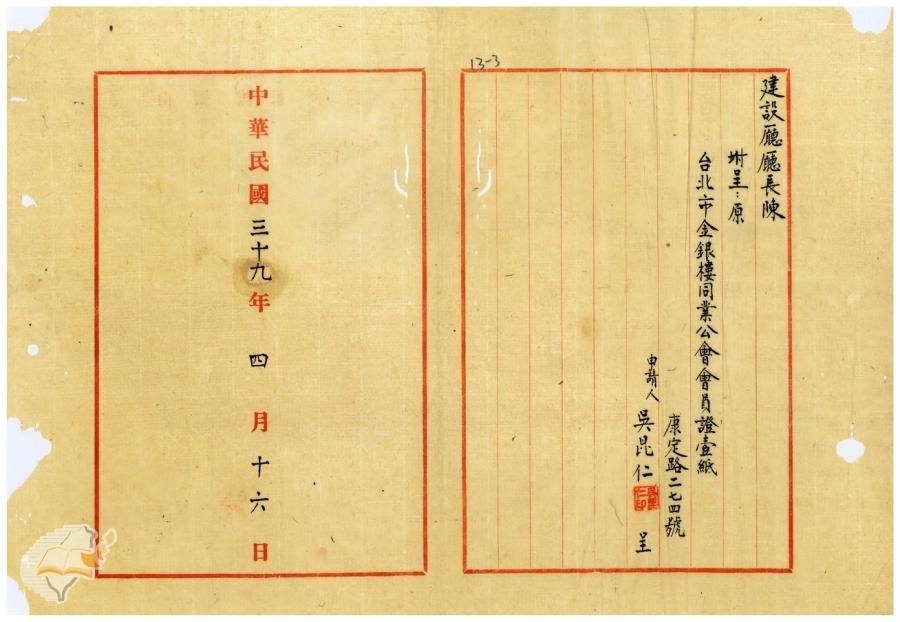 13-3
建設廳廳長陳
坿呈：原
台北市金銀樓同業公會會員證壹紙
康定路二七四號
申請人 吳昆仁 呈
中華民國三十九年 四 月 十六 日